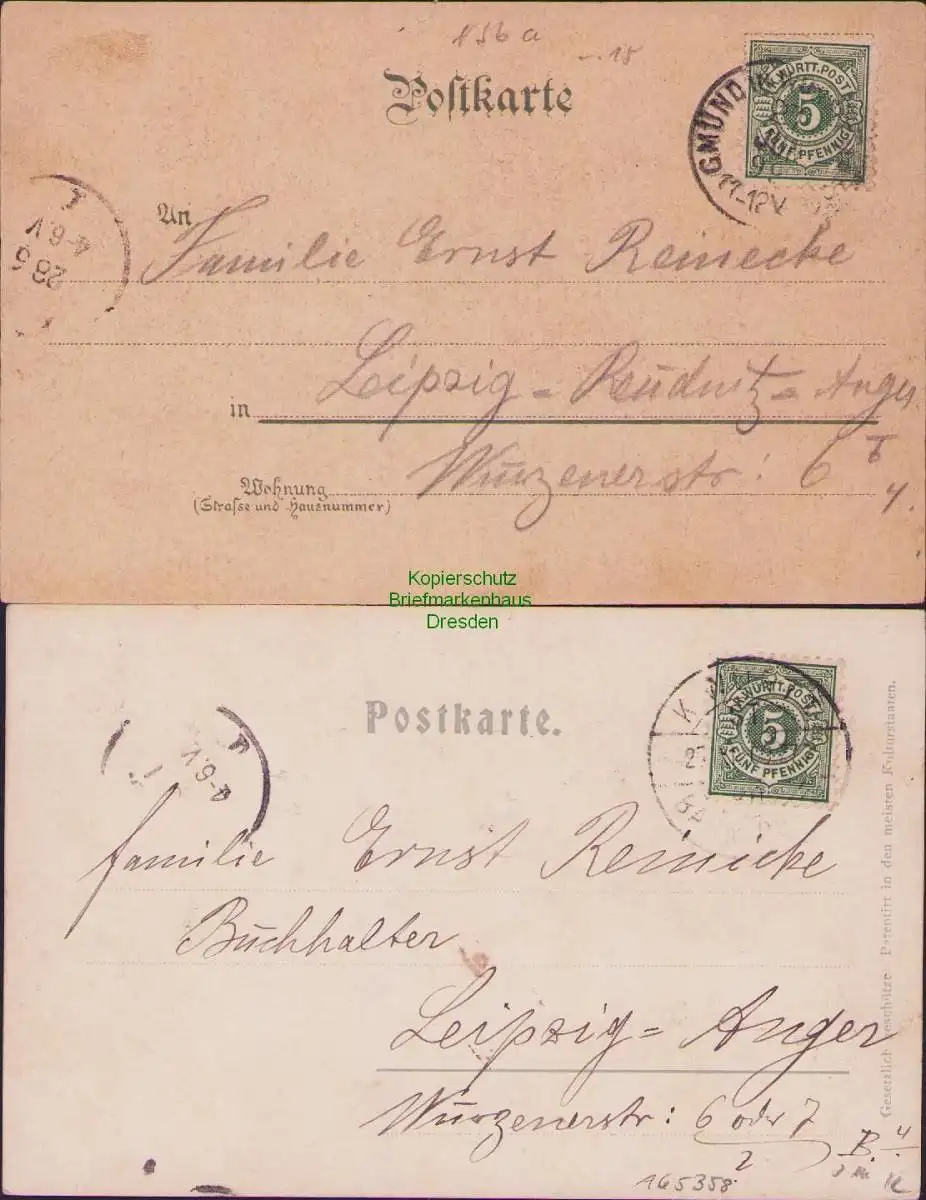 156a
-.15
Postkarte
K.WÜRTT.POST
5
FÜNF PFENNIG
GMÜND
11-12V
4-6V
28 6
An Familie Ernst Reinecke
in Leipzig=Reudnitz=Anger
Wohnung
(Strasse und Hausnummer)
Wurzenerstr: 6
4.
Kopierschutz
Briefmarkenhaus
Dresden
Postkarte.
K.WÜRTT.POST
5
FÜNF PFENNIG
4-6.V
familie Ernst Reinecke
Buchhalter
Leipzig=Anger
Wurzenerstr: 6 oder 7
2
B. 4
165358
Gesetzlich geschützt. Patentirt in den meisten Kulturstaaten.